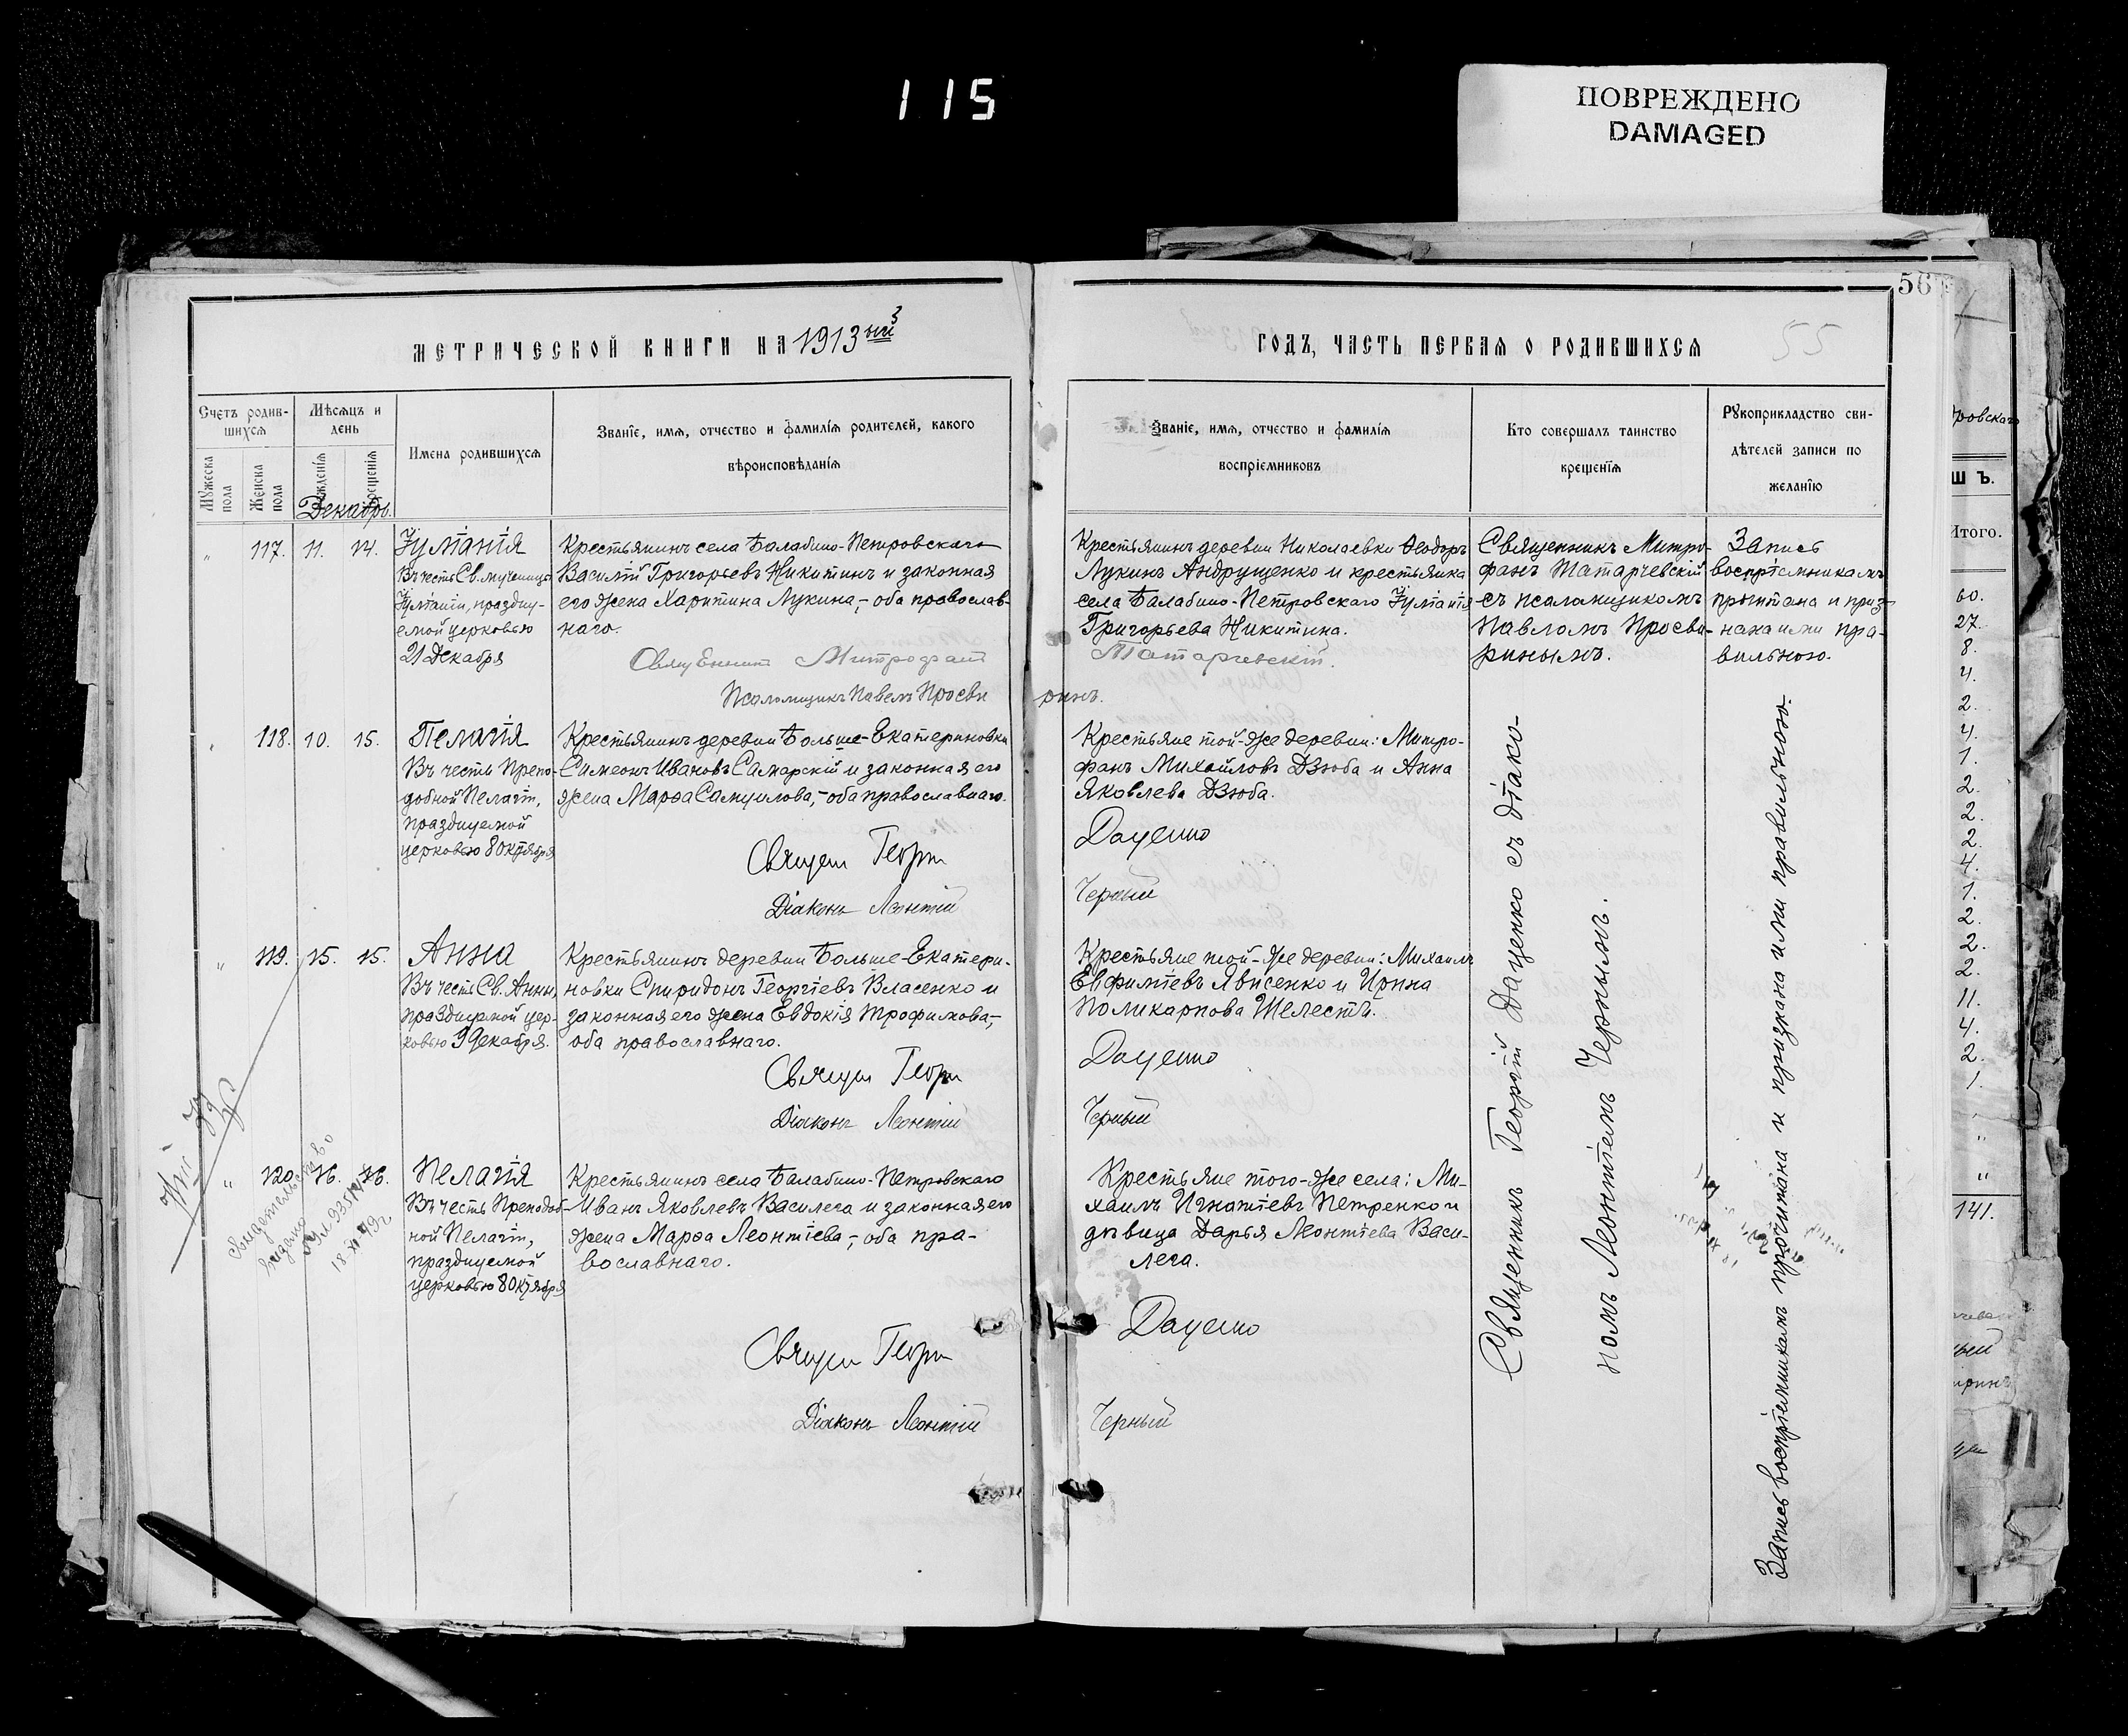 115
ПОВРЕЖДЕНО
DAMAGED
56
55
МЕТРИЧЕСКОЙ КНИГИ НА 1913 ый
ГОДЪ, ЧАСТЬ ПЕРВАЯ О РОДИВШИХСЯ
Счетъ родив-
шихся
Мѣсяцъ и
день
Мужеска пола
Женска пола
рожденія
крещенія
Декабрь.
Имена родившихся
Званіе, имя, отчество и фамилія родителей, какого
вѣроисповѣданія
Званіе, имя, отчество и фамилія
воспріемниковъ
Кто совершалъ таинство
крещенія
Рукоприкладство сви-
дѣтелей записи по
желанію
117. 11. 14.
Іуліанія
Въ честь Св. мученицы
Іуліаніи, праздну-
емой церковью
21 Декабря
Крестьянинъ села Балабино-Петровскаго
Василій Григорьевъ Никитинъ и законная
его жена Харитина Лукина,- оба православ-
наго.
Крестьянинъ деревни Николаевки Ѳеодоръ
Лукинъ Андрущенко и крестьянка
села Балабино-Петровскаго Іуліанія
Григорьева Никитина.
Священникъ Митро-
фанъ Татарчевскій
съ псаломщикомъ
Павломъ Просви-
ринымъ.
Запись
воспріемникамъ
прочитана и приз-
нана ими пра-
вильною.
Священникъ Митрофанъ Татарчевскій.
Псаломщикъ Павелъ Просви ринъ.
118. 10. 15.
Пелагія
Въ честь Препо-
добной Пелагіи,
празднуемой
церковью 8 Октября
Крестьянинъ деревни Больше-Екатериновки
Симеонъ Ивановъ Самарскій и законная его
жена Марѳа Самуилова,- оба православнаго.
Крестьяне той-же деревни: Митро-
фанъ Михайловъ Дзюба и Анна
Яковлева Дзюба.
Священ Георгій Даценко
Діаконъ Леонтій Черный
119. 15. 15.
Анна
Въ честь Св. Анны,
празднуемой цер-
ковью 9 Декабря.
Крестьянинъ деревни Больше-Екатери-
новки Спиридонъ Георгіевъ Власенко и
законная его жена Евдокія Трофимова,-
оба православнаго.
Крестьяне той-же деревни: Михаилъ
Евфиміевъ Явисенко и Ирина
Поликарпова Шелестъ.
Священ Георгій Даценко
Діаконъ Леонтій Черный
120. 16. 16.
Пелагія
Въ честь Преподоб-
ной Пелагіи,
празднуемой
церковью 8 Октября
Крестьянинъ села Балабино-Петровскаго
Иванъ Яковлевъ Василега и законная его
жена Марѳа Леонтіева,- оба пра-
вославнаго.
Крестьяне того-же села: Ми-
хаилъ Игнатіевъ Петренко и
дѣвица Дарья Леонтіева Васи-
лега.
Священ Георгій Даценко
Діаконъ Леонтій Черный
Священникъ Георгій Даценко съ діако-
номъ Леонтіемъ Чернымъ.
Запись воспріемникамъ прочитана и признана ими правильною.
свидетельство
выдано
Ш Ъ.
Итого.
60.
27.
8.
4.
2.
4.
1.
2.
2.
2.
4.
1.
2.
2.
2.
11.
4.
2.
1.
"
"
141.